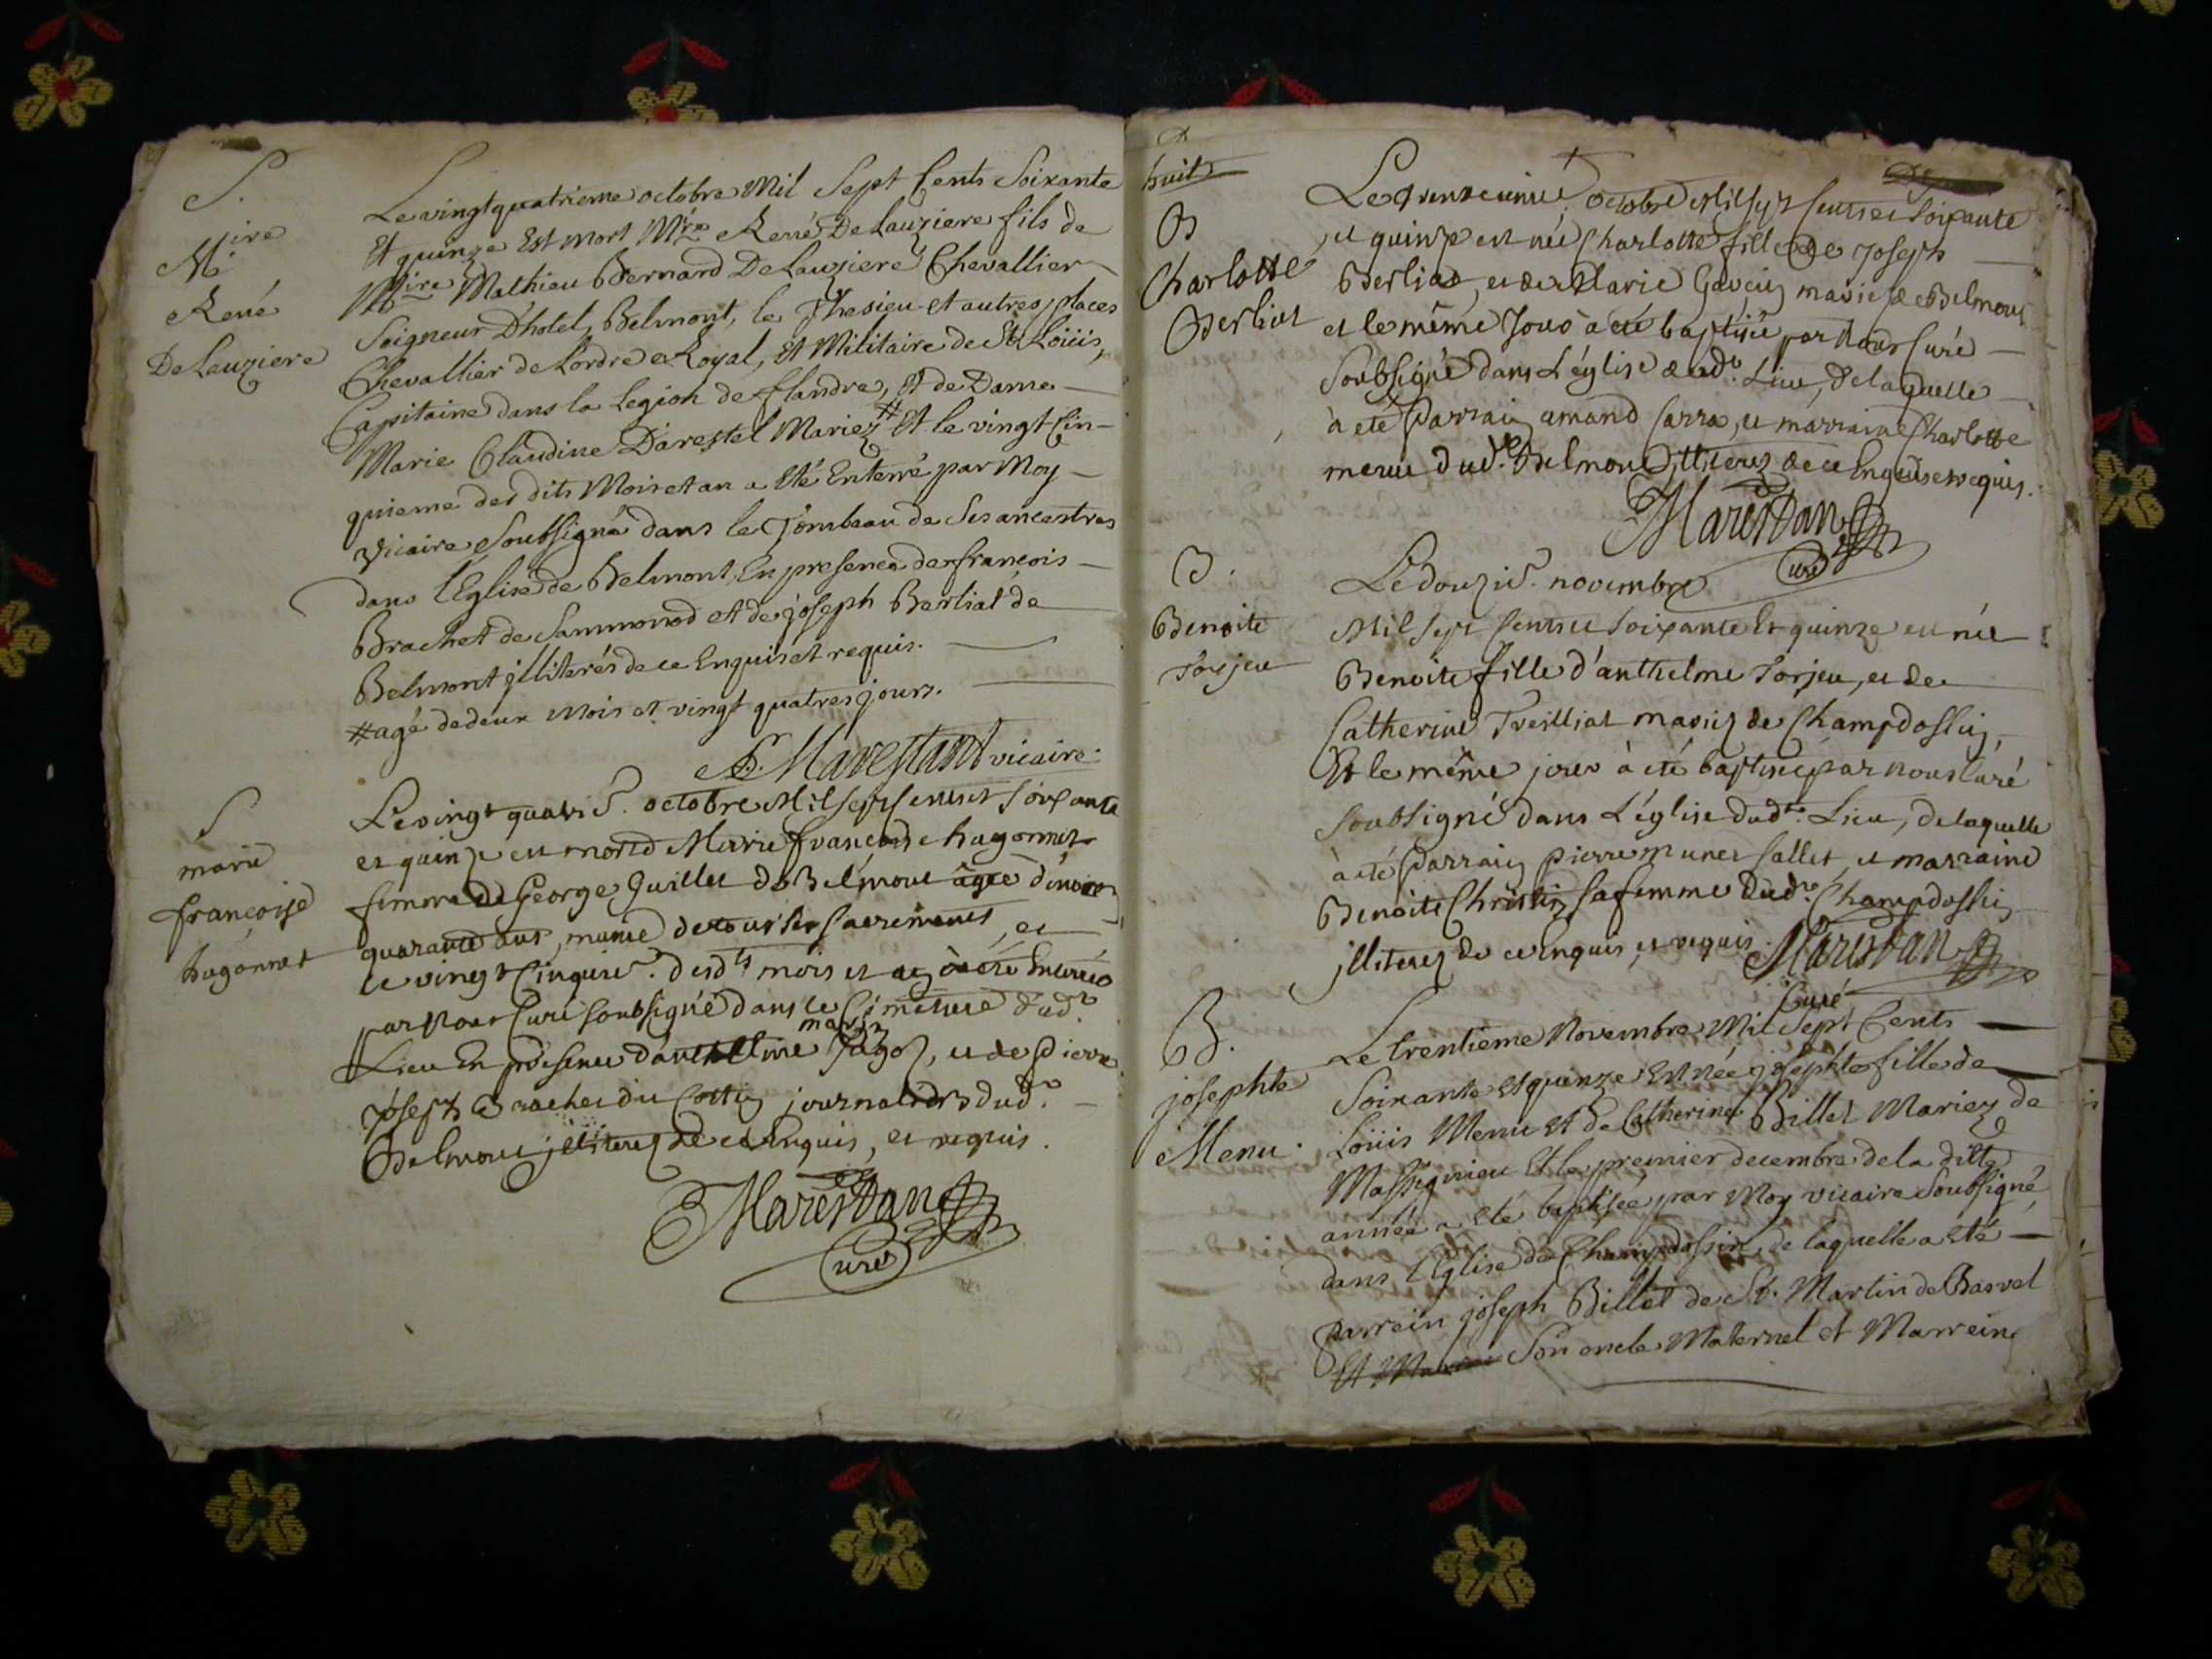 S.
Mire
René
De Lauziere
Le vingt quatrieme octobre Mil Sept Cents Soixante
Et quinze Est mort Mre René De Lauziere fils de
Mire Mathieu Bernard De Lauziere Chevallier
Seigneur D'hotel, Belmont, le Thesieu et autres places
Chevallier de Lordre Royal, et Militaire de St Loüis,
Capitaine dans la Legion de flandre, et de Dame
Marie Claudine Darestel Mariez # Et le vingt Cin-
quieme des dits Mois et an a Eté Enterré par Moy
vicaire Soubsigné dans le Tombeau de Ses ancestres
dans l'Eglise de Belmont, En presence de francois
Brachet de Sammonod et de joseph Berliat de
Belmont jlliterés de ce Enquis et requis.
# agé de deux Mois et vingt quatres jours.
Marestant vicaire
S
marie
françoise
hugonnet
Le vingt quatrie. octobre Mil sept cents et soixante
et quinze est morte Marie françoise hugonnet
femme de George Guillet de Belmont âgée d'environ
quarante ans, munie de tous les Sacrements, et
le vingt Cinquie. desdts mois et an à été Enterrée
par Nous Curé soubsigné dans le Cimetiere dudt
Lieu En présence d'anthelme Jagoz, et de Pierre
joseph Brachet du journaliers dudt
Belmont jlliterez de ce Enquis, et requis.
Marestan
Curé
huit
B
Charlotte
Berliat
Le trente unie. octobre Mil sept Cents et soixante
et quinze est née Charlotte fille de Joseph
Berliat, et de Marie Gavein mariez de Belmont
et le même Jour à été baptisée par Nous Curé
Soubsigné dans L'église dudt. Lieu, de laquelle
à été Parrain amand Carra, et marraine Charlotte
menu dudt. Belmont, jlliterez de ce Enquis et requis.
Marestan
Curé
B.
Benoite
Torjeu
Le douzie. novembre
Mil sept Cents et soixante Et quinze est née
Benoite fille d'anthelme Torjeu, et de
Catherine Treilliat mariez de Champdossin,
Et le même jour à été baptisée par nous Curé
soubsigné dans L'église dudt. Lieu, de laquelle
à été Parrain pierre munet Callet, et marraine
Benoite Christin sa femme dudt. Champdossin
jlliterez de ce Enquis, et requis. Marestan
Curé
B.
josephte
Menu.
Le trentieme Novembre Mil Sept Cents
Soixante et quinze Est née josephte fille de
Loüis Menu et de Catherine Billet Mariez de
Massignieu Et le premier decembre de la ditte
année a Eté baptisée par Moy vicaire Soubsigné
dans l'Eglise de Champdossin, de laquelle a Eté
Parrein joseph Billet de St. Martin de Bavel
Et Son oncle Maternel et Marreine